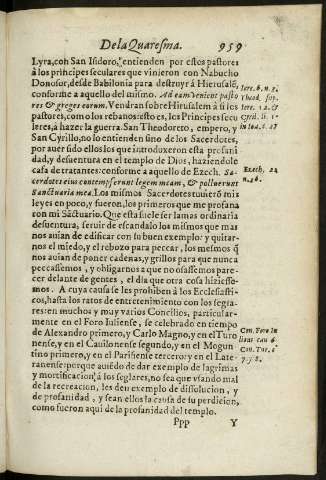 De la Quaresma. 959
Lyra, con San Isidoro, entienden por estos pastores
à los principes seculares que vinieron con Nabucho
Donosor, desde Babilonia para destruyr à Hierusalē,
conforme a aquello del mismo. Ad eam venient pasto
res & greges eorum. Vendran sobre Hirusalem à si los
pastores, como los rebanos: esto es, los Principes secu
lares, à hazer la guerra. San Theodoreto, empero, y
San Cyrillo, no lo entienden sino de los Sacerdotes,
por auer sido ellos los que introduxeron esta profani
dad, y desuentura en el templo de Dios, haziendole
casa de tratantes: conforme a aquello de Ezech. Sa-
cerdotes eius contempserunt legem meam, & polluerunt
Sanctuaria mea. Los mismos Sacerdotes tuuierō mis
leyes en poco, y fueron, los primeros que me profana
ron mi Sāctuario. Que esta suele ser la mas ordinaria
desuentura, seruir de escandalo los mismos que mas
nos auian de edificar con su buen exemplo: y quitar-
nos el miedo, y el rebozo para peccar, los mesmos q̄
nos auian de poner cadenas, y grillos para que nunca
peccassemos, y obligarnos a que no osassemos pare-
cer delante de gentes, el dia que otra cosa hiziesse-
mos. A cuya causa se les prohiben à los Ecclesiasti-
cos, hasta los ratos de entretenimiento con los segla-
res: en muchos y muy varios Concilios, particular-
mente en el Foro Iuliense, se celebrado en tiempo
de Alexandro primero, y Carlo Magno, y en el Turo
nense, y en el Cauilonense segundo, y en el Mogun
tino primero, y en el Parisiense tercero: y en el Late-
ranense: porque auiēdo de dar exemplo de lagrimas
y mortificacion, à los seglares, no sea que vsando mal
de la recreacion, les den exemplo de dissolucion, y
de profanidad, y sean ellos la causa de su perdicion,
como fueron aqui de la profanidad del templo.
Ppp Y
Iere. 6. n. 3.
Theod. sup.
Iere. 12. &
Cyril. li.
Ezech. 22
n. 26.
Con. Foro Iu
liens can 6.
Con. Tur. c
7. y 8.